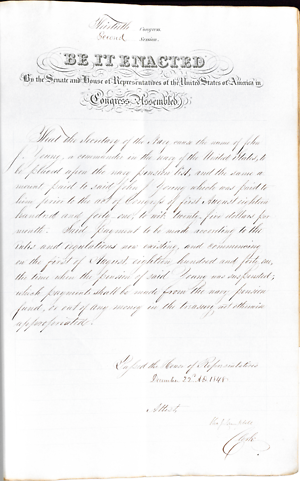 Thirtieth Congress
Second Session
BE IT ENACTED
By the Senate and House of Representatives of the United States of America in
Congress Assembled,
That the Secretary of the Navy cause the name of John
J. Young, a commander in the navy of the United States, to
be placed upon the navy pension list, and the same a
mount paid to said John J. Young which was paid to
him prior to the act of Congress of first August eighteen
hundred and forty one, to wit, twenty five dollars per
month. Said payment to be made according to the
rules and regulations now existing, and commencing
on the first of August, eighteen hundred and forty one,
the time when the pension of said Young was suspended;
which payments shall be made from the navy pension
fund, or out of any money in the treasury not otherwise
appropriated.
Passed the House of Representatives
December 22d 1848
Attest
Clerk